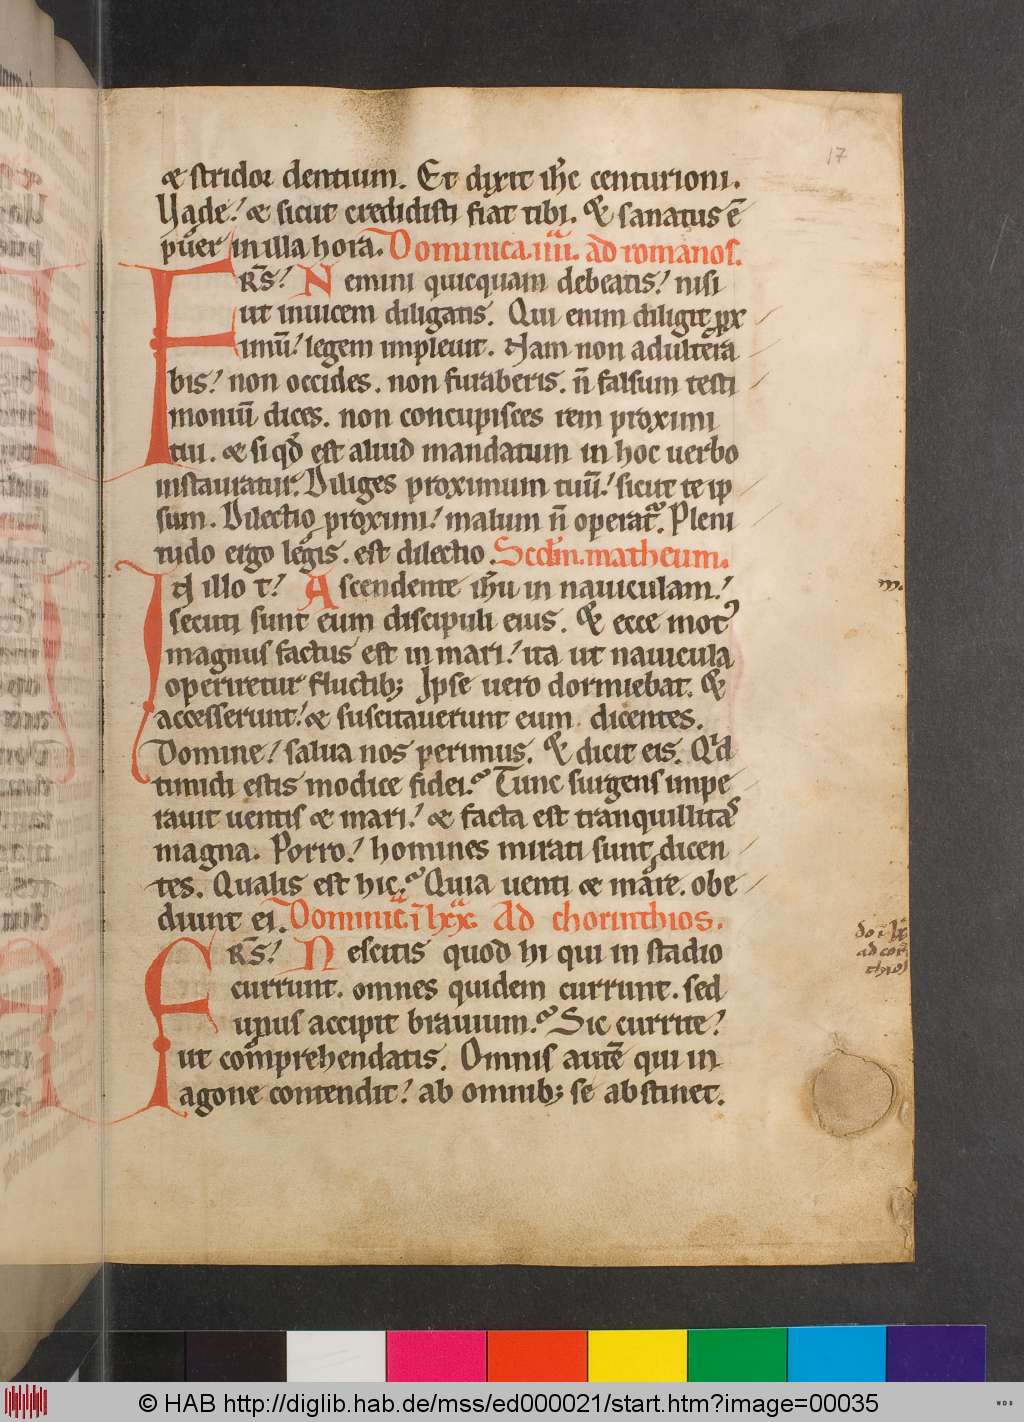 17
& stridor dentium. Et dixit ih̄c centurioni.
Vade! & sicut credidisti fiat tibi. & sanatus ē
puer in illa hora. Dominica. iiii. ad romanos.
FRS̄! Nemini quicquam debeatis! nisi
ut inuicem diligatis. Qui enim diligit prox
imū! legem impleuit. Nam non adultera
bis! non occides. non furaberis. n̄ falsum testi
moniū dices. non concupisces rem proximi
tui. & si qd̄ est aliud mandatum in hoc uerbo
instauratur. Diliges proximum tuū! sicut te ip
sum. Dilectio proximi! malum n̄ operat̄. Pleni
tudo ergo legis. est dilectio. Scdm̄. matheum.
IN illo t̄! Ascendente ih̄u in nauiculam!
secuti sunt eum discipuli eius. & ecce mot᾽
magnus factus est in mari! ita ut nauicula
operiretur fluctib; Ipse uero dormiebat. &
accesserunt! & suscitauerunt eum dicentes.
Domine! salua nos perimus. & dicit eis. Qid
timidi estis modice fidei. Tunc surgens impe
rauit uentis & mari! & facta est tranquillitas
magna. Porro! homines mirati sunt dicen
tes. Qualis est hic. Quia uenti & mare. obe
diunt ei. Dominic̄. ī lxx. Ad chorinthios.
FRS̄! Nescitis quod hi qui in stadio
currunt. omnes quidem currunt. sed
unus accipit brauium. Sic currite!
ut comprehendatis. Omnis autē qui in
agone contendit! ab omnib; se abstinet.
m.
do ī lx
ad cor
thios
© HAB http://diglib.hab.de/mss/ed000021/start.htm?image=00035